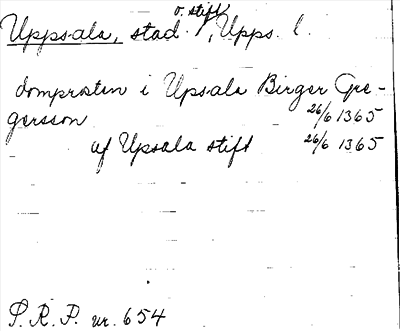 Uppsala, stad o. stift, Upps. l.
domprosten i Upsala Birger Gre-
gersson 26/6 1365
af Upsala stift 26/6 1365
P. R. P. nr. 654